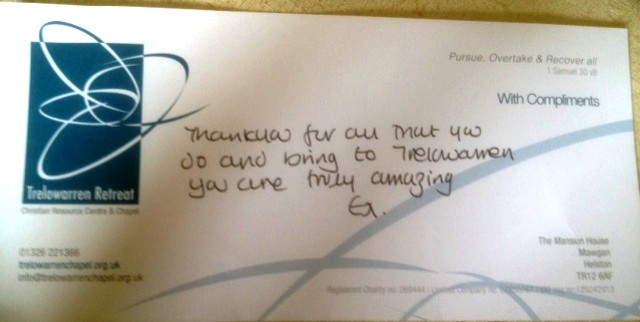 Pursue, Overtake & Recover all
1 Samuel 30 v8
With Compliments
Thankyou for all that you
do and bring to Trelowarren
you are truly amazing
Trelowarren Retreat
Christian Resource Centre & Chapel
01326 221366
trelowarrenchapel.org.uk
info@trelowarrenchapel.org.uk
The Mansion House
Mawgan
Helston
TR12 6AF
Registered Charity no.